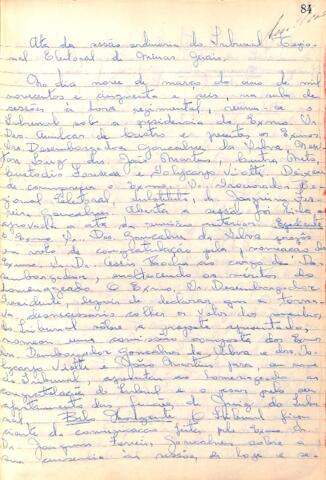 84
Ata da sessão ordinaria do Tribunal Regio-
nal Eleitoral de Minas Gerais.
No dia nove de março do ano de mil
novecentos e cinquenta e seis, na sala de
sessões à hora regimental, reuniu-se o
Tribunal sob a presidencia do Exmo. Sr.
Des. Amilcar de Castro e presentes os Exmos.
Srs. Desembargadores Gonçalves da Silva,
drs. Jair Martins, Cunha
Fonseca e Policarpo Viotti. Deixou
de comparecer o Exmo. Sr. Procurador Re-
gional Eleitoral, substituto, dr. Joaquim Fer-
reira Gonçalves. Aberta a sessão foi lida e
aprovada a ata da reunião anterior. Expediente
O Exmo. Sr. Des. Gonçalves da Silva propôs
um voto de congratulação pela nomeação do
Exmo. Sr. Dr. ao cargo de De-
sembargador, enaltecendo os méritos do
homenageado. O Exmo. Sr. Desembargador
Presidente, depois de declarar que
desnecessario colher os votos dos
do Tribunal sobre a proposta apresentada,
nomeou uma comissão composta dos Exmos
Srs. Desembargador Gonçalves da Silva e drs. Po-
licarpo Viotti e Jair Martins para, em nome
do Tribunal, apresentar ao homenageado as
congratulações do Tribunal e o
das funções de Juiz do Tribu-
nal. Belo Horizonte O Tribunal ficou
ciente da comunicação feita pelo Exmo. Sr.
Dr. Joaquim Ferreira Gonçalves sobre a
sua ausencia às sessões de hoje e se-